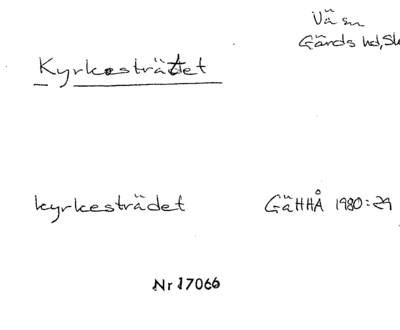 Vä sn
Gärds hd, Sk
Kyrkesträtet
kyrkesträdet GäHHÅ 1980:29
Nr 17066